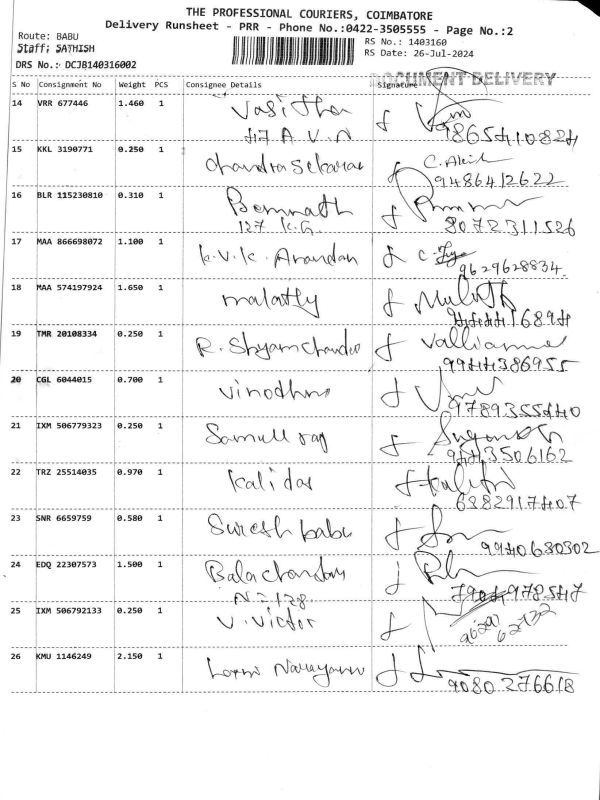 THE PROFESSIONAL COURIERS, COIMBATORE
Delivery Runsheet - PRR - Phone No.:0422-3505555 - Page No.:2
Route: BABU
Staff: SATHISH
DRS No.: DCJB140316002
RS No.: 1403160
RS Date: 26-Jul-2024
DOCUMENT DELIVERY
S No Consignment No Weight PCS Consignee Details Signature
14 VRR 677446 1.460 1 Vasitha
47 A V.N 9865410824
15 KKL 3190771 0.250 1 Chandrasekaran C. Akil
9486412622
16 BLR 115230810 0.310 1
127 K.G. 8072311526
17 MAA 866698072 1.100 1 K.V.K. Anandan
9629628834.
18 MAA 574197924 1.650 1 malathy
19 TMR 20108334 0.250 1 R. Shyam Chander
9944386955
20 CGL 6044015 0.700 1 Vinodhna
9789355440
21 IXM 506779323 0.250 1
9443506162
22 TRZ 25514035 0.970 1 Kalidas
6382917407
23 SNR 6659759 0.580 1 Suresh babu
9940680302
24 EDQ 22307573 1.500 1 Balachandan
7904978547
25 IXM 506792133 0.250 1 V. Victor
26 KMU 1146249 2.150 1 Narayanan
9080276618